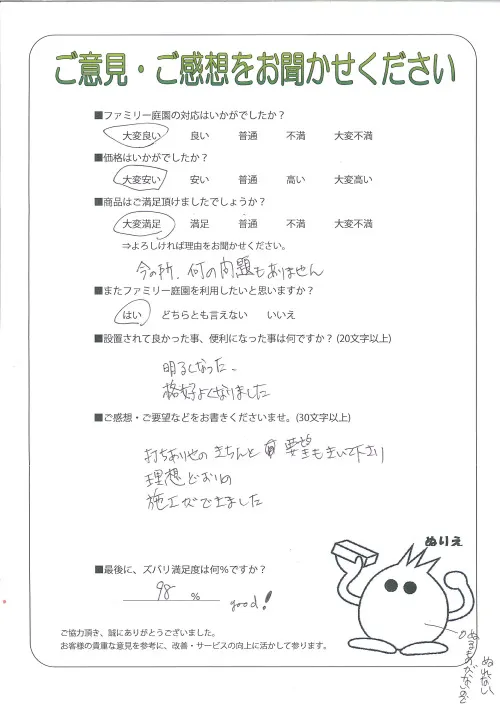 ご意見・ご感想をお聞かせください
■ファミリー庭園の対応はいかがでしたか？
大変良い 良い 普通 不満 大変不満
■価格はいかがでしたか？
大変安い 安い 普通 高い 大変高い
■商品はご満足頂けましたでしょうか？
大変満足 満足 普通 不満 大変不満
⇒よろしければ理由をお聞かせください。
今の所、何の問題もありません
■またファミリー庭園を利用したいと思いますか？
はい どちらとも言えない いいえ
■設置されて良かった事、便利になった事は何ですか？(20文字以上)
明るくなった、
格好よくなりました
■ご感想・ご要望などをお書きくださいませ。(30文字以上)
打ちあわせの きちんと 要望もきいて下さり
理想どおりの
施工ができました
■最後に、ズバリ満足度は何％ですか？
98 % good!
ご協力頂き、誠にありがとうございました。
お客様の貴重な意見を参考に、改善・サービスの向上に活かして参ります。
ぬりえ
ぬるものがないので
ぬれない